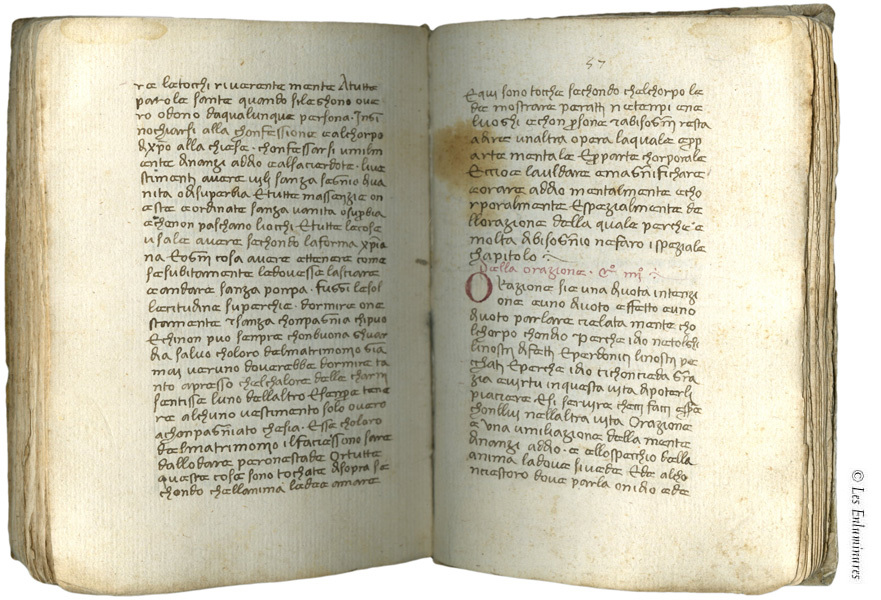 re letocchi riverente mente Atutte
parole sante quando sileghono ove
ro odono daqualunque persona. Ingi
nochiarsi alla chonfessione e alchorpo
dxp̄o alla chiesa. chonfessarsi umilm
ente dinanzi addio e alsacierdote. live
stimenti avere vili sanza segnio diva
nita odisuperbia Etutte massenzie on
este e ordinate sanza vanita osuperbia
echenon paschano liocchi Etutte lecose
usale avere sechondo laforma xp̄ia
na Eogni cosa avere ettenere come
sesubitamente ledovesse lasciare
e andare sanza ponpa. fussi lesol
lecitudine superchie. dormire one
stamente esanza chonpagnia chipuo
Echinon puo senpre chonbuona ghuar
dia salvo choloro delmatrimonio gia
mai veruno doverebbe dormire ta
nto apresso chelchalore delle charni
sentisse luno dellaltro Esenpre tene
re alchuno vestimento solo overo
achonpagniato chesia. Esse choloro
delmatrimonio ilfaciessono sare
dallodare Ortutte
queste cose sono tochate disopra se
chondo chellanima ledee amare
57
Equi sono toche sechondo chelchorpo le
dee mostrare peratti netempi ene
luoghi echon p̄sone edibisogni resta
adire unaltra opera laquale e p̄p
arte mentale Ep̄parte chorporale
Eccioe laulldare emagnifichare
e orare addio mentalmente echo
rporalmente Espezialmente de
llorazione della quale perche e
molta dibisognio nefaro ispeziale
chapitolo
Della orazione. C̊. iiij̊.
Orazione sie una divota intenzi
one euno divoto effetto euno
divoto parlare celata mente cho
lchorpo chondio. Perche idio netolghi
linostri difetti Eperdonici linostri pe
chati Eperche idio cichonceda gra
zia evirtu inquesta vita dipoterli
piaciere Esi servire
chonllui nellaltra vita Orazione
e una umiliazione della mente
dinanzi addio. e ellospechio della
anima ladove sivede Ede alchо
nciestoro dove parla onidio ede